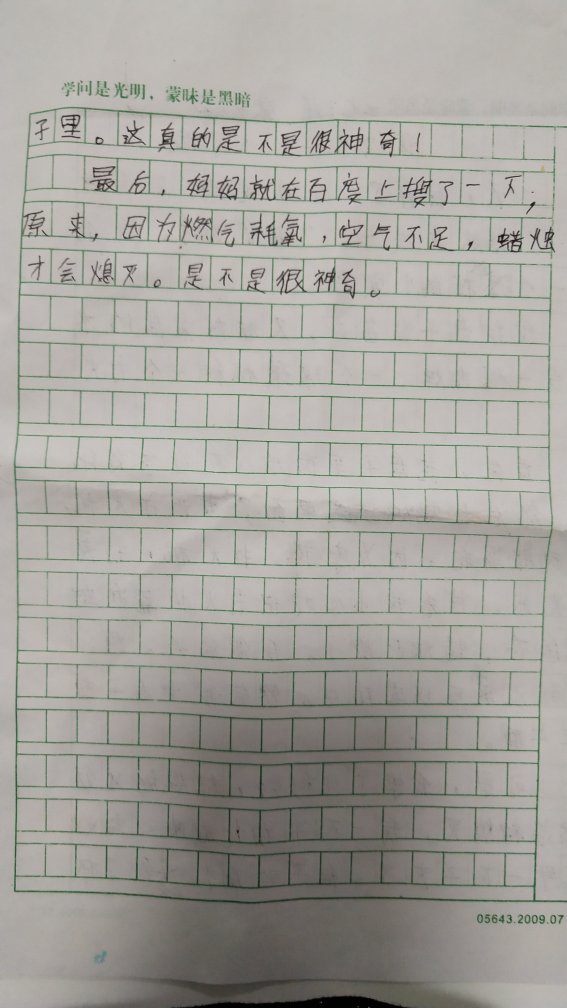 学问是光明，蒙昧是黑暗
子里。这真的是不是很神奇！
最后，妈妈就在百度上搜了一下，
原来，因为燃气耗氧，空气不足，蜡烛
才会熄灭。是不是很神奇。
05643.2009.07